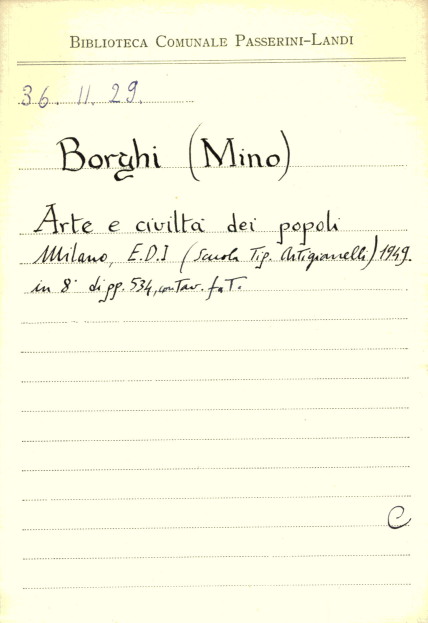 BIBLIOTECA COMUNALE PASSERINI-LANDI
36. 11. 29.
Borghi (Mino)
Arte e civiltà dei popoli
Milano, E.D.I (Scuola Tip. Artigianelli) 1949.
in 8° di pp. 534, con tav. f. T.
C